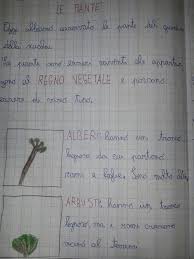 LE PIANTE
Oggi abbiamo osservato le piante del giardino
della scuola.
Le piante sono esseri viventi che apparten
gono al REGNO VEGETALE e possono
essere di vario tipo.
ALBERI: hanno un tronco
legnoso da cui partono
rami e foglie. Sono molto alti.
ARBUSTI: hanno un tronco
legnoso, ma i rami crescono
vicino al terreno.